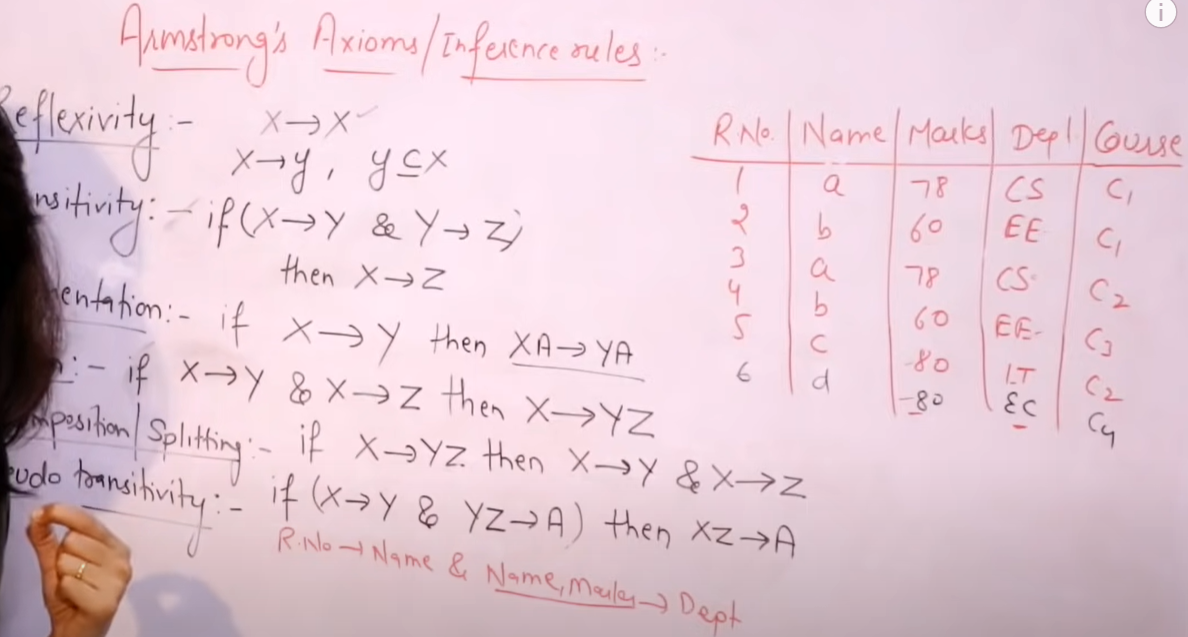 Armstrong's Axioms/Inference rules:-
eflexivity:- X→X
X→y, y⊆X
nsitivity:- if(X→Y & Y→Z)
then X→Z
entation:- if X→Y then XA→YA
:- if X→Y & X→Z then X→YZ
mposition/Splitting:- if X→YZ then X→Y & X→Z
eudo transitivity:- if (X→Y & YZ→A) then XZ→A
R.No→Name & Name,Marks→Dept
R.No. Name Marks Dept Course
1 a 78 CS C1
2 b 60 EE C1
3 a 78 CS C2
4 b 60 EE C3
5 c 80 IT C2
6 d 80 EC C4
i